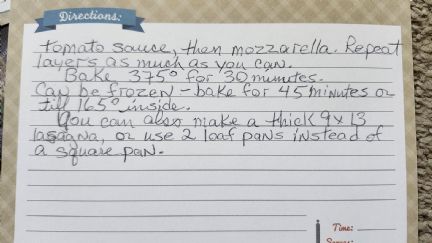 Directions:
tomato sauce, then mozzarella. Repeat
layers as much as you can.
Bake 375° for 30 minutes.
Can be frozen - bake for 45 minutes or
till 165° inside.
You can also make a thick 9x13
lasagna, or use 2 loaf pans instead of
a square pan.
Time:
Serves: